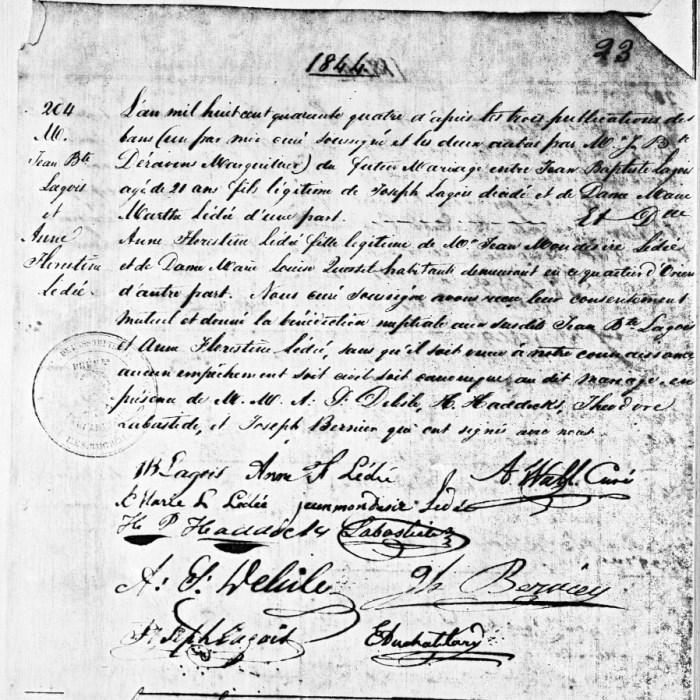 1844
23
204
M.
Jean Bte
Lagois
et
Anne
Florestine
Lédié.
L'an mil huit cent quarante quatre d'après les trois publications des
bans (un par moi curé soussigné et les deux autres par Mr J. Bte
Deravins Marguillier) du futur Mariage entre Jean Baptiste Lagois
agé de 21 ans fils légitime de Joseph Lagois décédé et de Dame Marie
Marthe Lédié d'une part. Et Dlle
Anne Florestine Lédié fille legitime de Mr Jean Mondesire Lédié
et de Dame Marie Louise Quossel habitants demeurant en ce quartier d'
d'autre part. Nous curé soussigné avons reçu leur consentement
mutuel et donné la bénédiction nuptiale aux susdits Jean Bte Lagois
et Anne Florestine Lédié, sans qu'il soit venu à notre connaissance
aucun empêchement soit civil soit canonique au dit mariage, en
présence de M. M. A. S. Delile, H. Haddocks, Théodore
Labastide, et Joseph Bernier qui ont signés avec nous
JB Lagois Anne F Lédié A. Curé
Marie L Lédié jean mondesir Lédié
H. P. Haddocks Labastide
A. S. Delile Jh
Joseph Lagois E Duchatelard